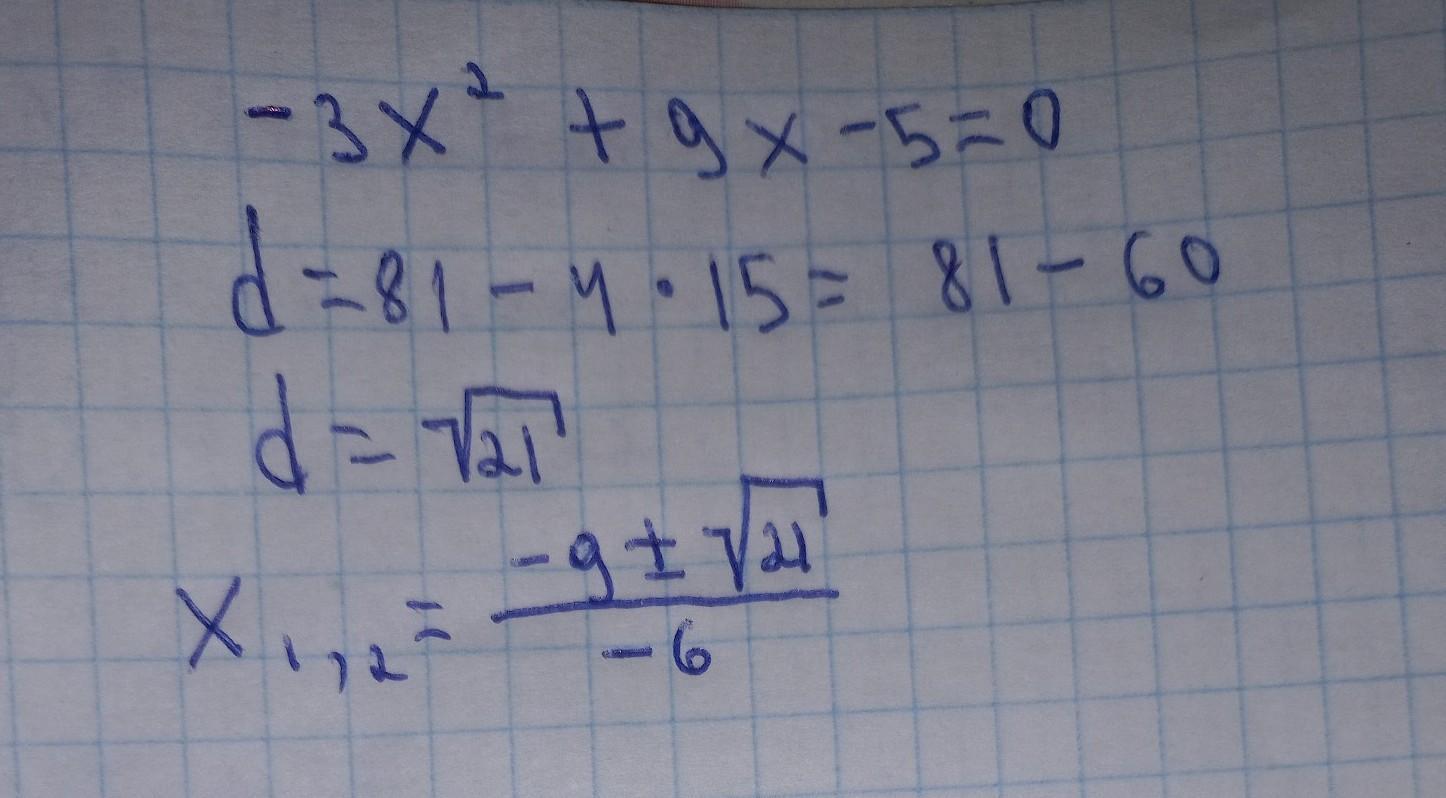 -3x² + 9x - 5 = 0
d = 81 - 4 · 15 = 81 - 60
d = √21
x₁,₂ = (-9 ± √21) / -6